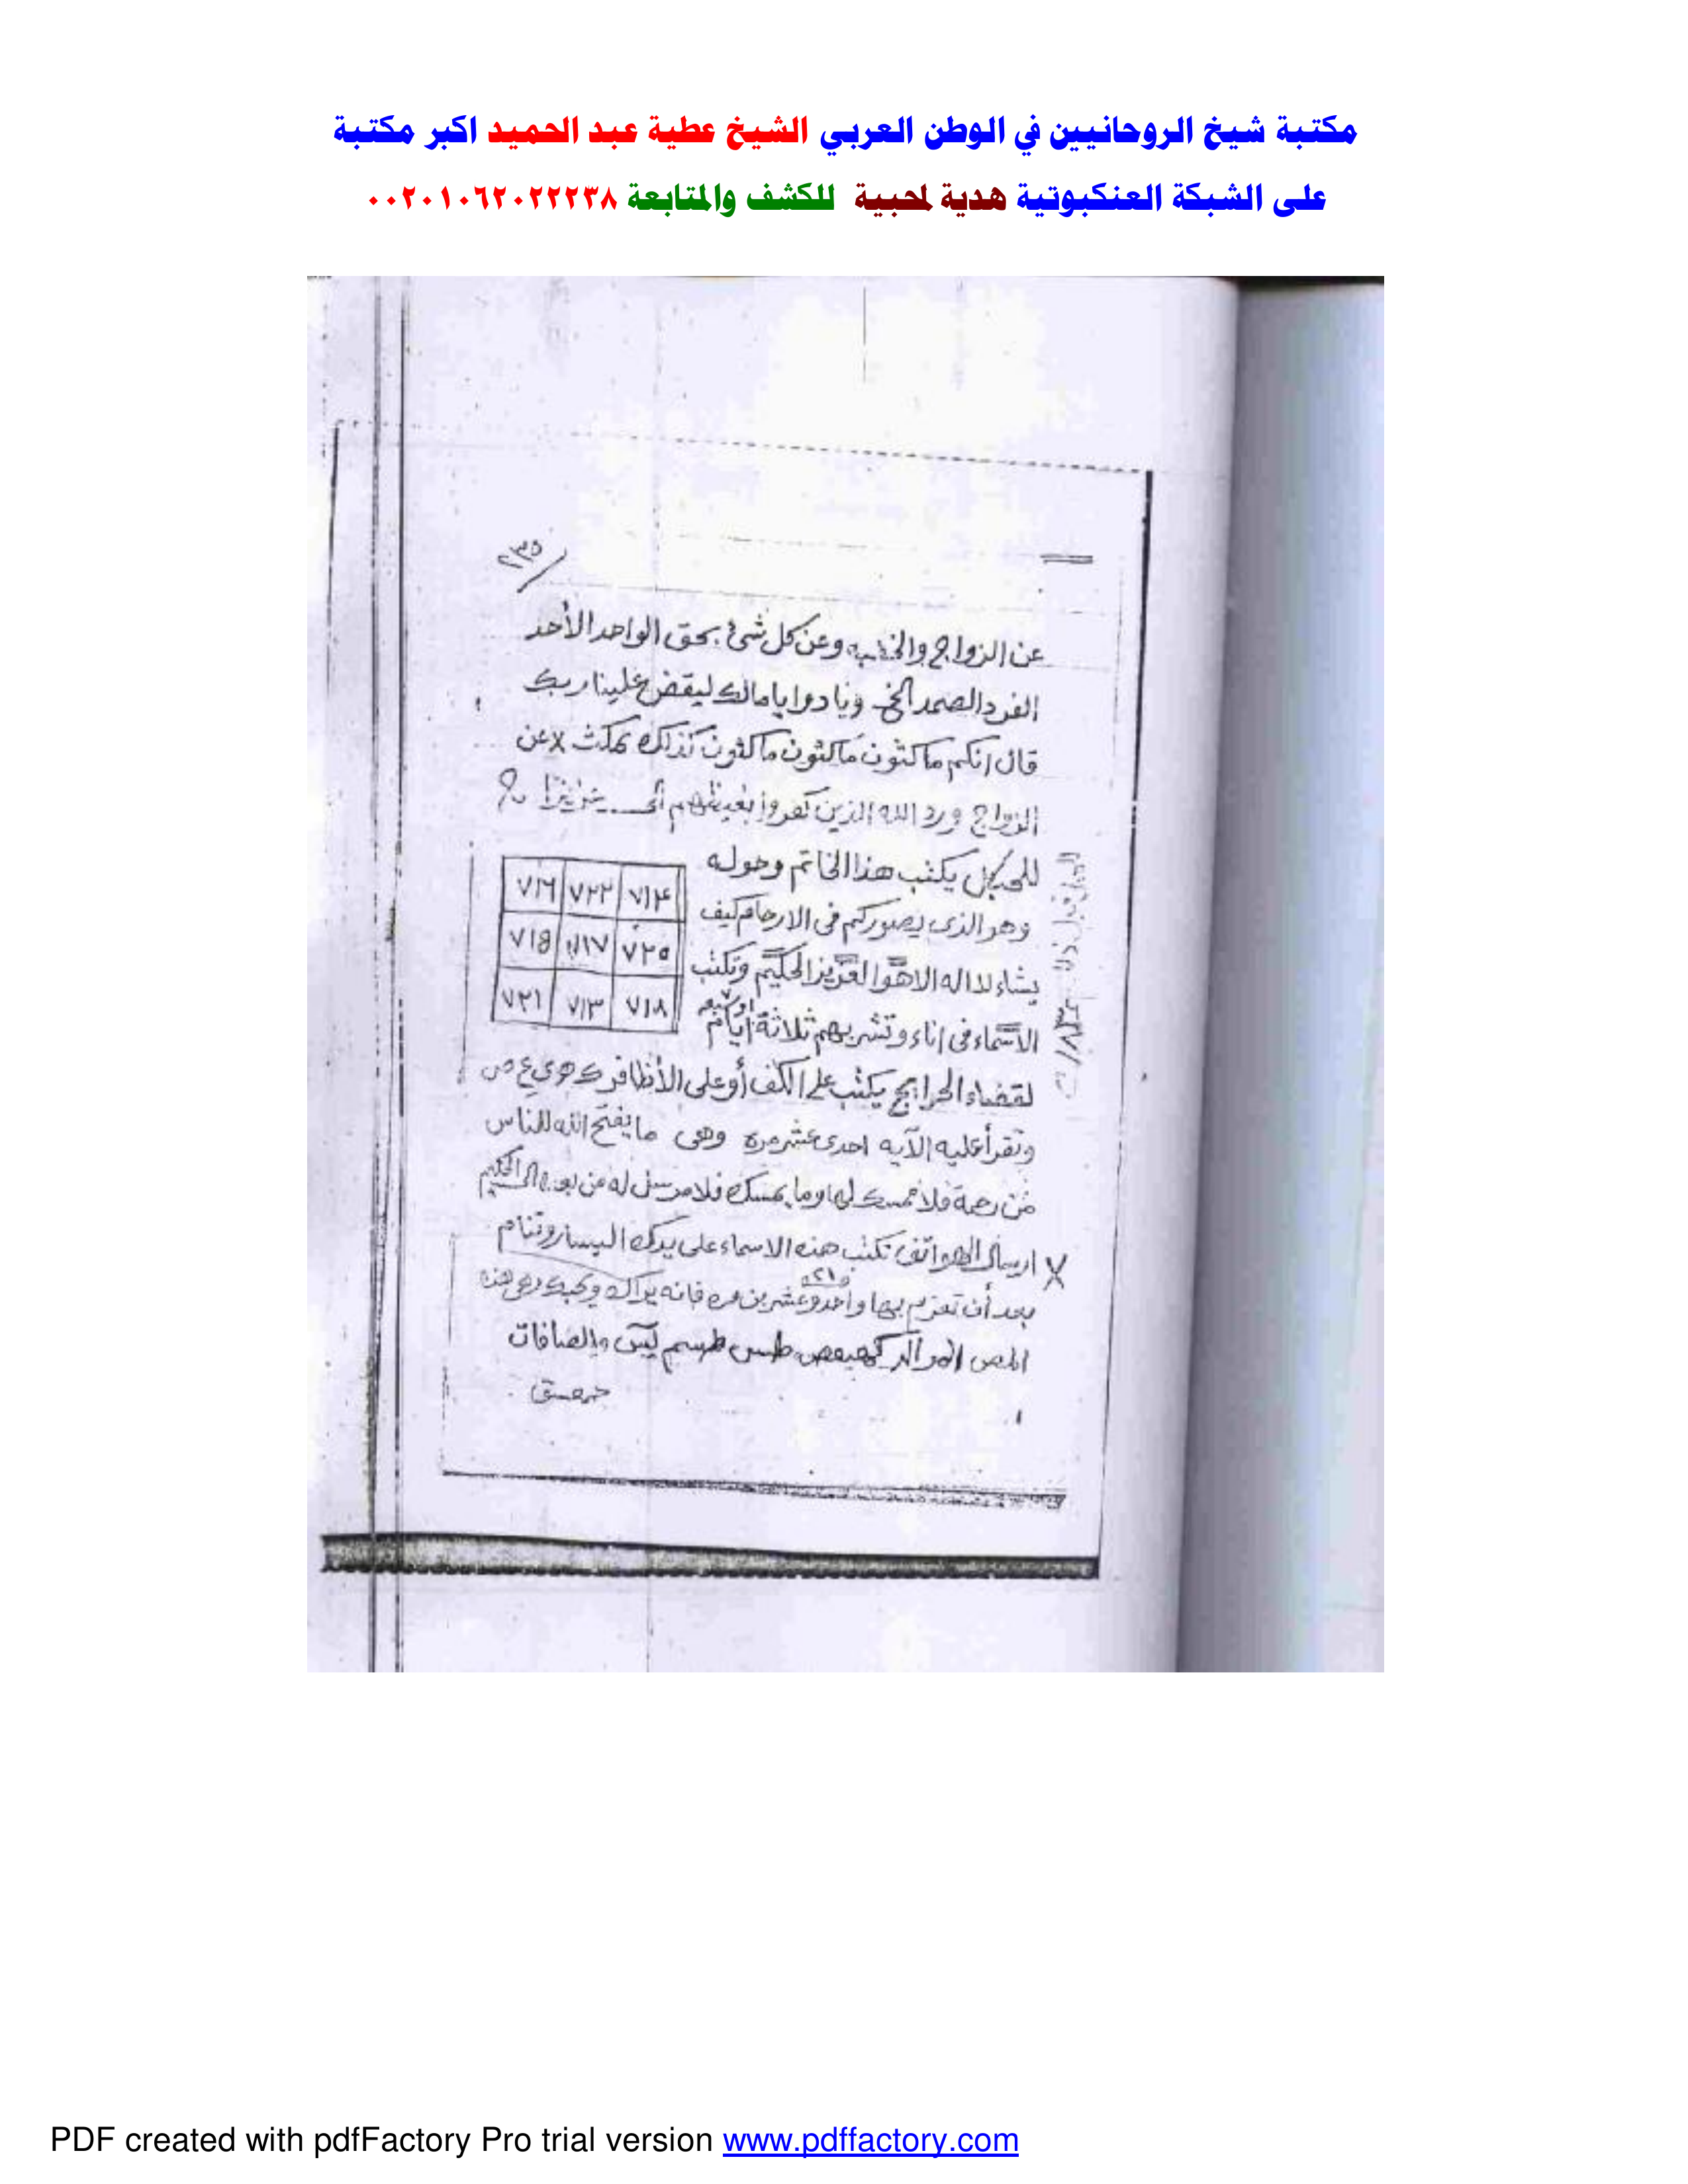 مكتبة شيخ الروحانيين في الوطن العربي الشيخ عطية عبد الحميد اكبر مكتبة
على الشبكة العنكبوتية هدية لمحبية للكشف والمتابعة ٠٠٢٠١٠٦٢٠٢٢٢٣٨
٢٣٥
عن الزواج وعن كل شئ بحق الواحد الأحد
الفرد الصمد الخ ونادوا يا مالك ليقض علينا ربك
قال انكم ماكثون ماكثون ماكثون كذلك عن
الزواج ورد الله الذين كفروا بغيظهم الى عزيزا
يكتب هذا الخاتم وحوله
وهو الذى يصوركم فى الارحام كيف
يشاء لا اله الا هو العزيز الحكيم وتكتب
الأسماء فى اناء وتشربهم ثلاثة أيام
٧١٤ ٧٢٢ ٧١٦
٧٢٥ ٧١٧ ٧١٥
٧١٨ ٧١٣ ٧٢١
لقضاء الحوايج يكتب على الكف أو على الأظافر ك ه ى ع ص
وتقرأ عليه الآيه احدى عشر مره وهى ما يفتح الله للناس
من رحمة فلا ممسك لها وما يمسك فلا مرسل له من بعده الحكيم
X ارسال الهواتف تكتب هذه الاسماء على يدك اليسار وتنام
بعد أن تعزم بها واحد وعشرين مره ٢١ فانه يراك هذه
المص المر الر كهيعص طس طسم يس والصافات
حمعسق
PDF created with pdfFactory Pro trial version www.pdffactory.com